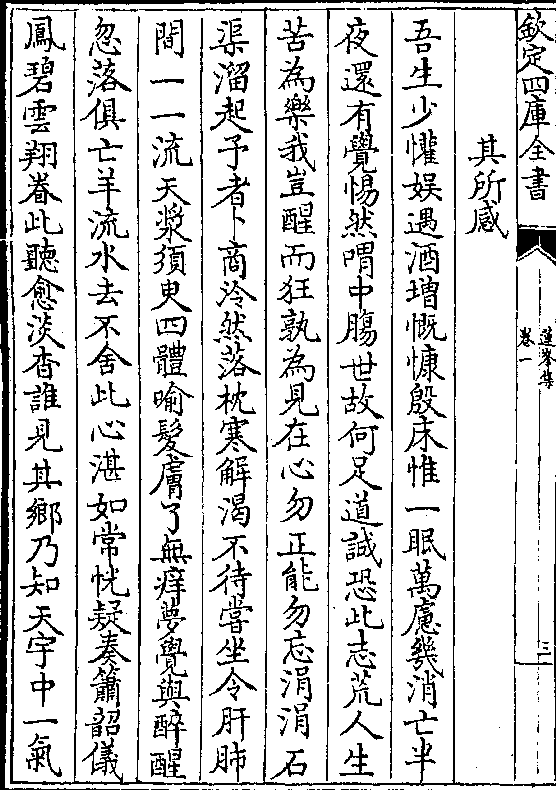 欽定四庫全書
蓮峯集
卷一
三
其所感
吾生少懽娱遇酒増慨慷殷床惟一眠萬慮幾消亡半
夜還有覺惕然喟中腸世故何足道誠恐此志荒人生
苦為樂我豈醒而狂孰為見在心勿正能勿忘涓涓石
渠溜起予者卜商泠然落枕寒解渴不待嘗坐令肝肺
間一一流天漿須臾四體喻髪膚了無痒夢覺與醉醒
忽落俱亡羊流水去不舍此心湛如常恍疑奏簫韶儀
鳳碧雲翔眷此聽愈淡杳誰見其鄉乃知天宇中一氣